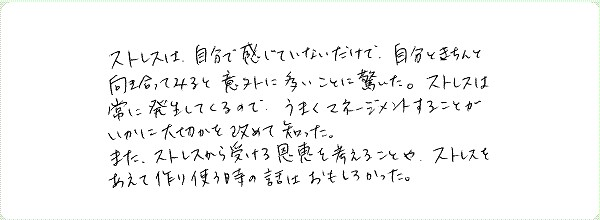 ストレスは、自分で感じていないだけで、自分ときちんと
向き合ってみると意外に多いことに驚いた。ストレスは
常に発生してくるので、うまくマネージメントすることが
いかに大切かを改めて知った。
また、ストレスから受ける恩恵を考えることや、ストレスを
あえて作り使う時の話はおもしろかった。